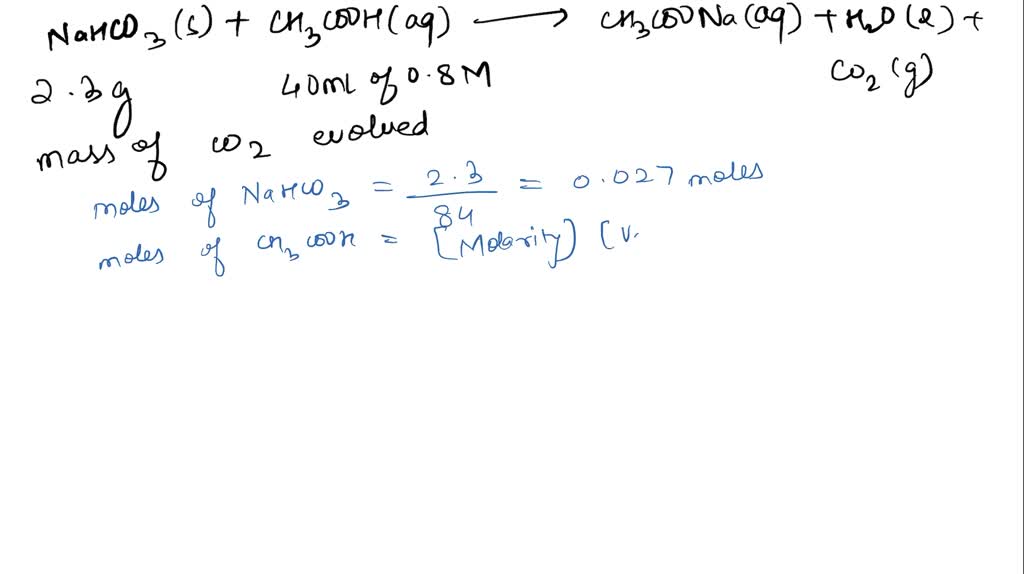 NaHCO3(s) + CH3COOH(aq) ⟶ CH3COONa(aq) + H2O(l) + CO2(g)
2.3g 40ml of 0.8M
mass of CO2 evolved
moles of NaHCO3 = 2.3/84 = 0.027 moles
moles of CH3COOH = [Molarity) (v.